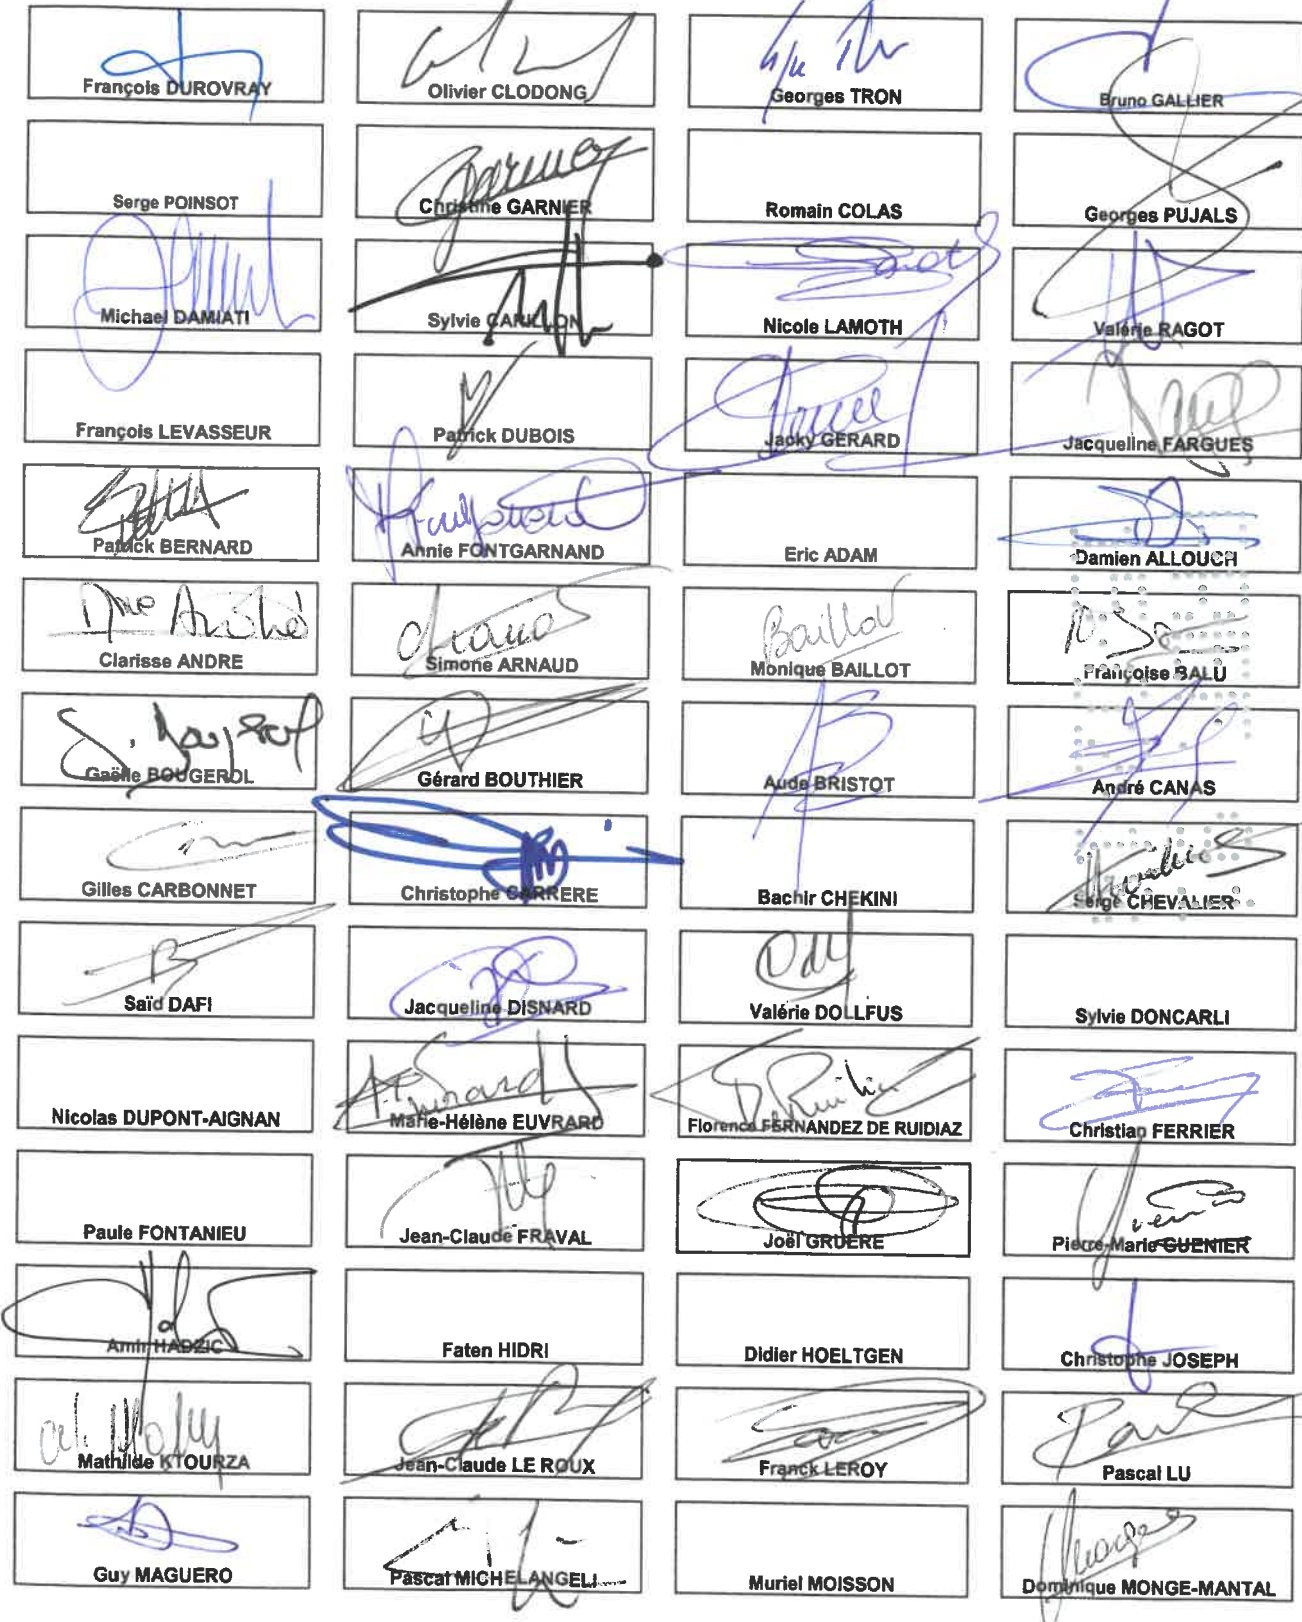 François DUROVRAY
Olivier CLODONG
Georges TRON
Bruno GALLIER
Serge POINSOT
Christine GARNIER
Romain COLAS
Georges PUJALS
Michael DAMIATI
Sylvie CARILLON
Nicole LAMOTH
Valérie RAGOT
François LEVASSEUR
Patrick DUBOIS
Jacky GERARD
Jacqueline FARGUES
Patrick BERNARD
Annie FONTGARNAND
Eric ADAM
Damien ALLOUCH
Clarisse ANDRE
Simone ARNAUD
Monique BAILLOT
Françoise BALU
Gaëlle BOUGEROL
Gérard BOUTHIER
Aude BRISTOT
André CANAS
Gilles CARBONNET
Christophe CARRERE
Bachir CHEKINI
Serge CHEVALIER
Saïd DAFI
Jacqueline DISNARD
Valérie DOLLFUS
Sylvie DONCARLI
Nicolas DUPONT-AIGNAN
Marie-Hélène EUVRARD
Florence FERNANDEZ DE RUIDIAZ
Christian FERRIER
Paule FONTANIEU
Jean-Claude FRAVAL
Joël GRUERE
Pierre-Marie GUENIER
Amir HADZIC
Faten HIDRI
Didier HOELTGEN
Christophe JOSEPH
Mathilde KTOURZA
Jean-Claude LE ROUX
Franck LEROY
Pascal LU
Guy MAGUERO
Pascal MICHELANGELI
Muriel MOISSON
Dominique MONGE-MANTAL